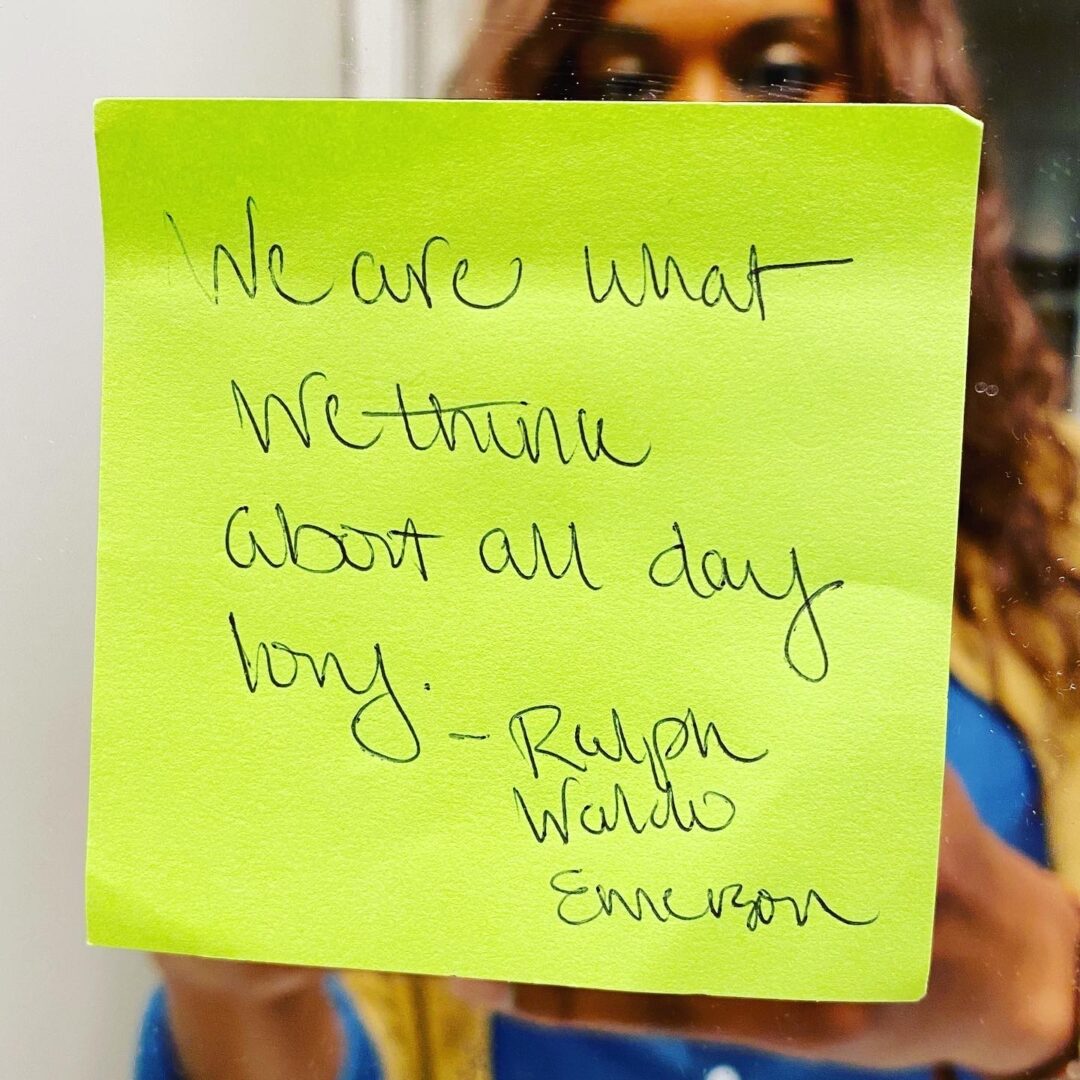 We are what
We think
about all day
long.
- Ralph
Waldo
Emerson